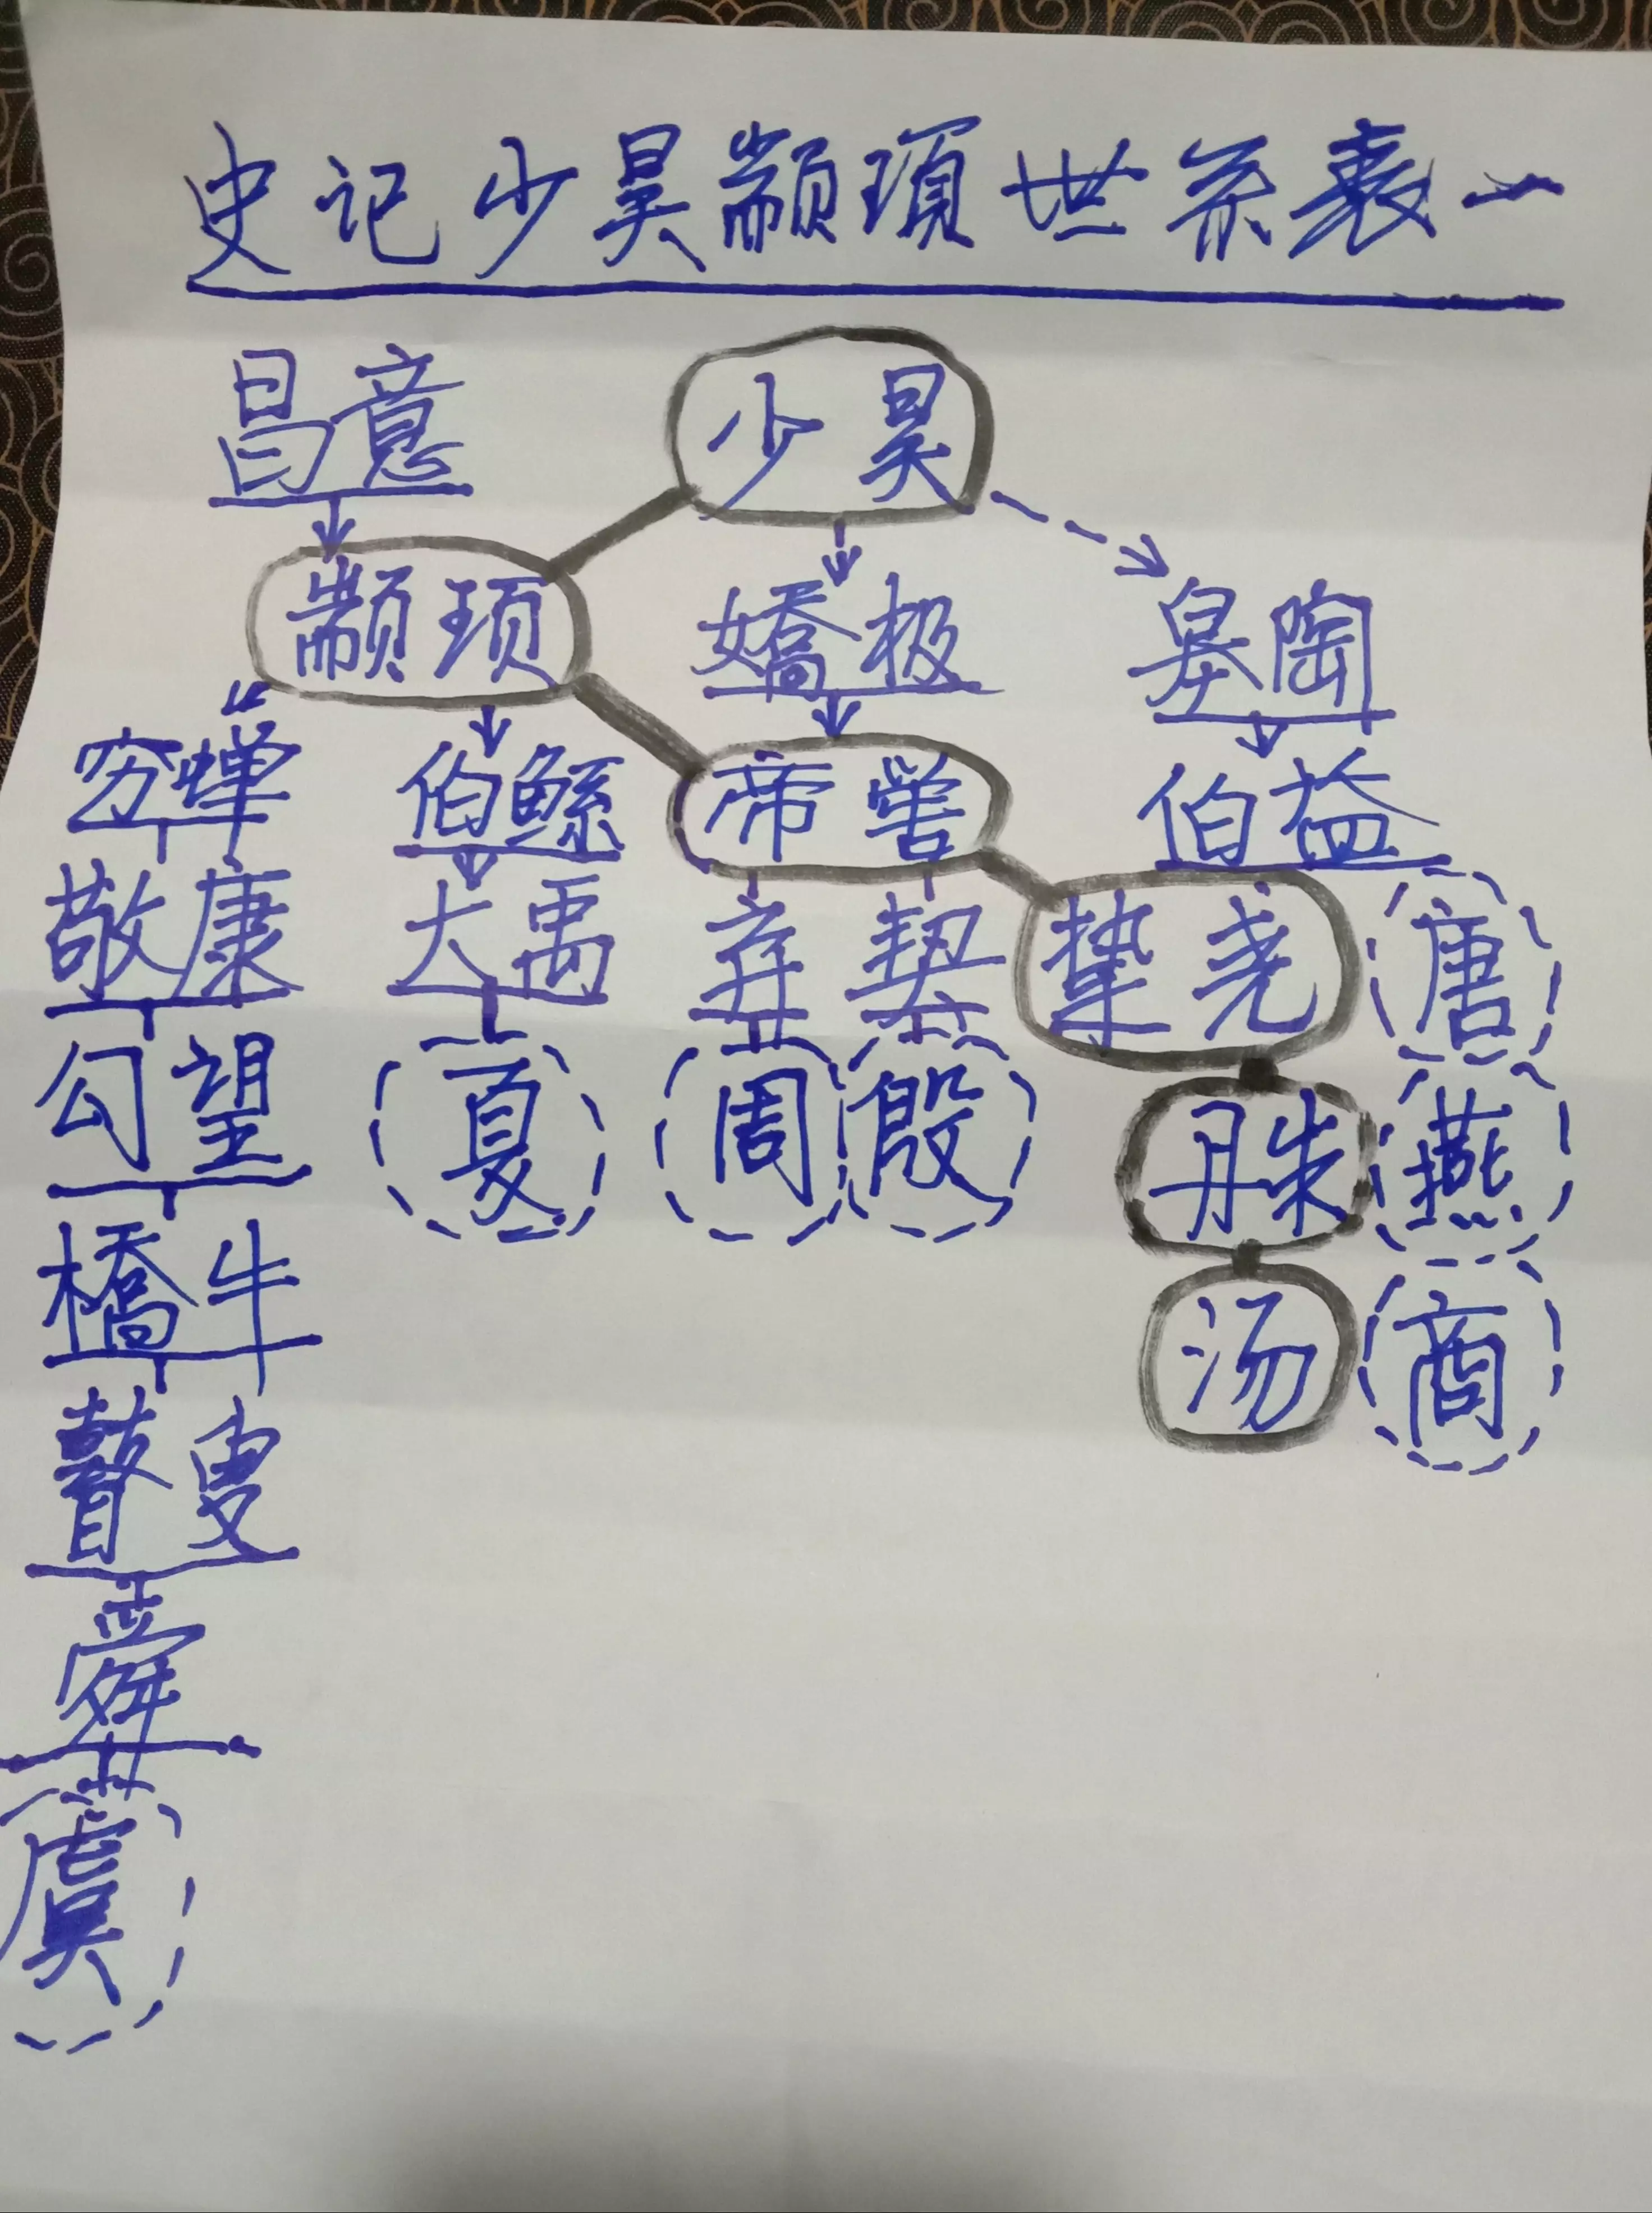 史记少昊颛顼世系表一
昌意 少昊
颛顼 嬌极 皋陶
穷蝉 伯鲧 帝喾 伯益
敬康 大禹 弃 契 挚 尧 唐
勾望 夏 周 殷 丹朱 燕
橋牛 汤 商
瞽叟
舜
虞